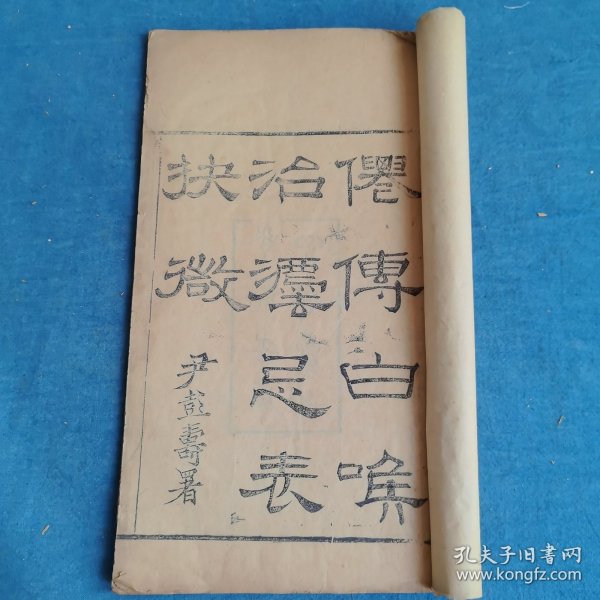 僊傳白喉
治法忌表
抉微
尹彭壽署
孔夫子旧书网
www.kongfz.com